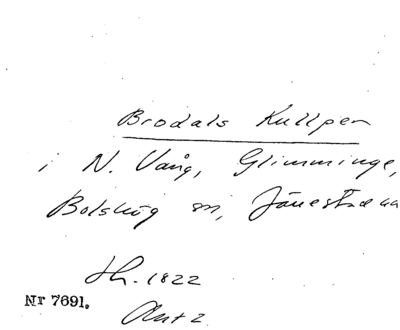 Brodals Kullpen
i N. Vång, Glimminge,
Bolshög sn, Järrestad
Sk. 1822
Nr 7691.